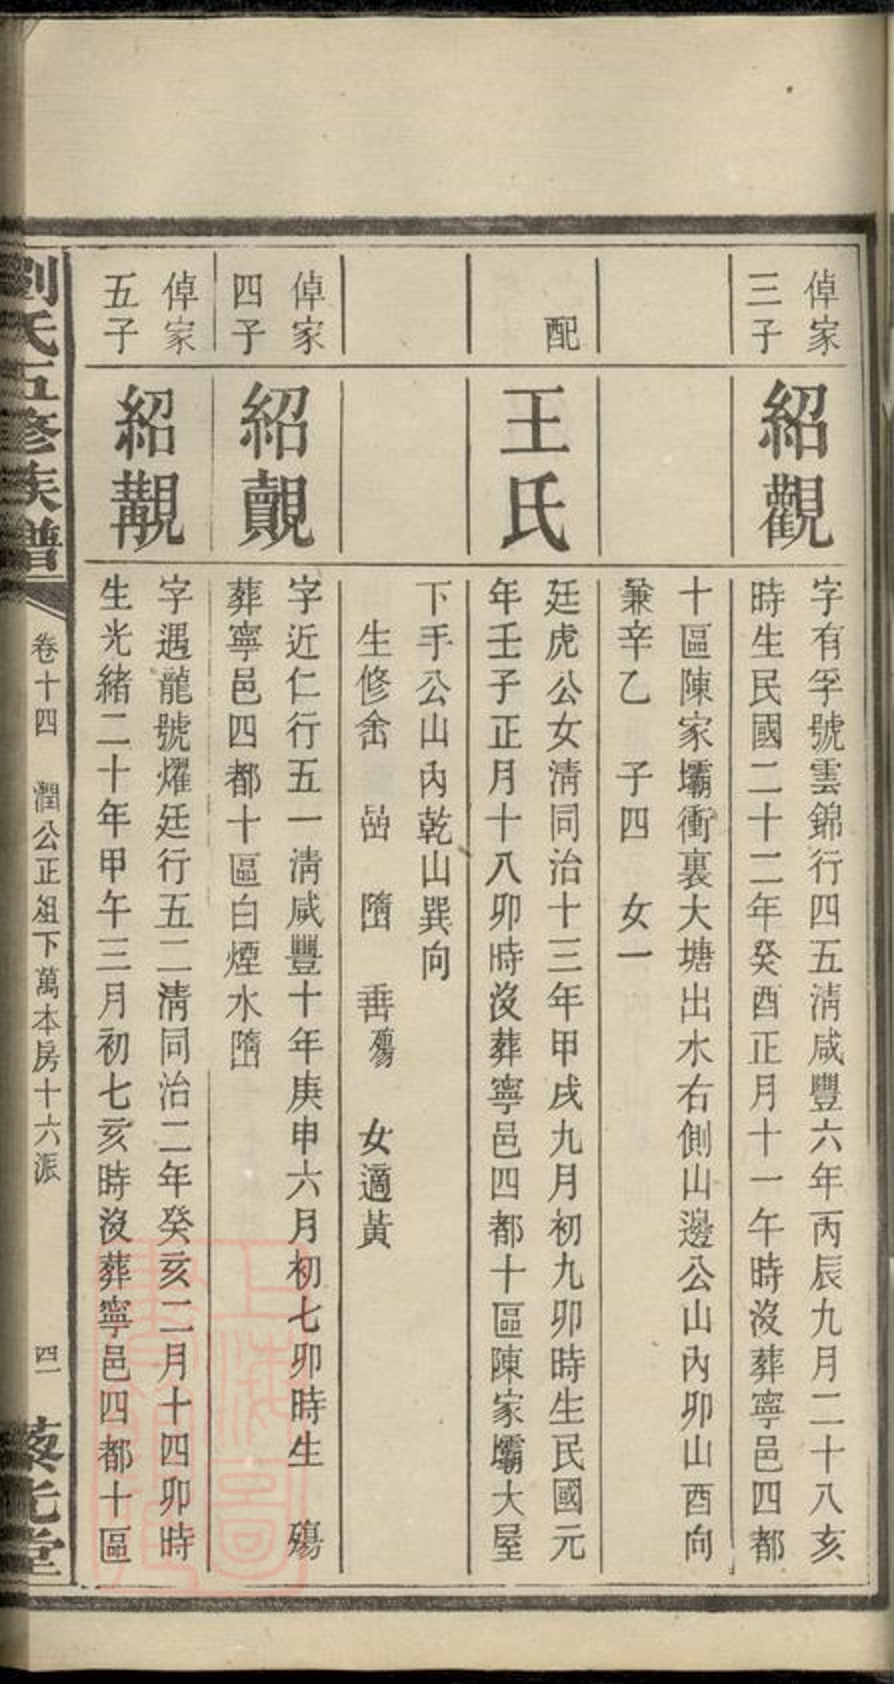 倬家
三子
紹觀
字有孚號雲錦行四五清咸豐六年丙辰九月二十八亥
時生民國二十二年癸酉正月十一午時沒葬寧邑四都
十區陳家壩衝裏大塘出水右側山邊公山內卯山酉向
兼辛乙 子四 女一
配
王氏
廷虎公女清同治十三年甲戌九月初九卯時生民國元
年壬子正月十八卯時沒葬寧邑四都十區陳家壩大屋
下手公山內乾山巽向
生修畬 嵒 墮 垂殤 女適黃
倬家
四子
紹覿
字近仁行五一清咸豐十年庚申六月初七卯時生 殤
葬寧邑四都十區白煙水
倬家
五子
紹覯
字遇龍號燿廷行五二清同治二年癸亥二月十四卯時
生光緒二十年甲午三月初七亥時沒葬寧邑四都十區
劉氏五修族譜
卷十四 潤公正俎下萬本房十六派
四一